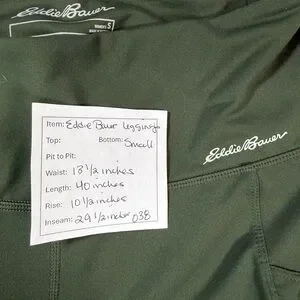 Eddie Bauer
WOMEN'S S
Eddie Bauer
Item: Eddie Bauer Leggings
Top: Bottom: Small
Pit to Pit:
Waist: 13 1/2 inches
Length: 40 inches
Rise: 10 1/2 inches
Inseam: 29 1/2 inches 038